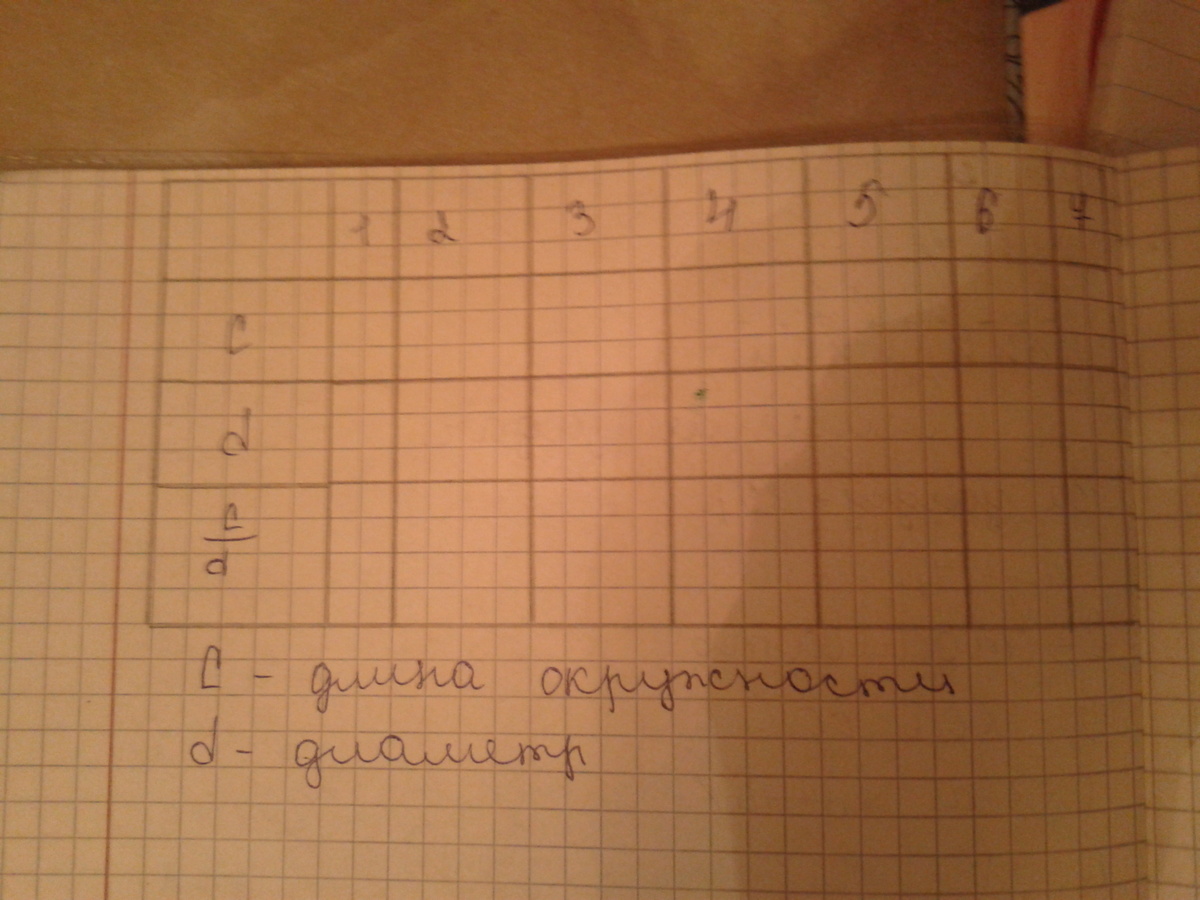 1 2 3 4 5 6 7
C
d
C
d
C - длина окружности
d - диаметр